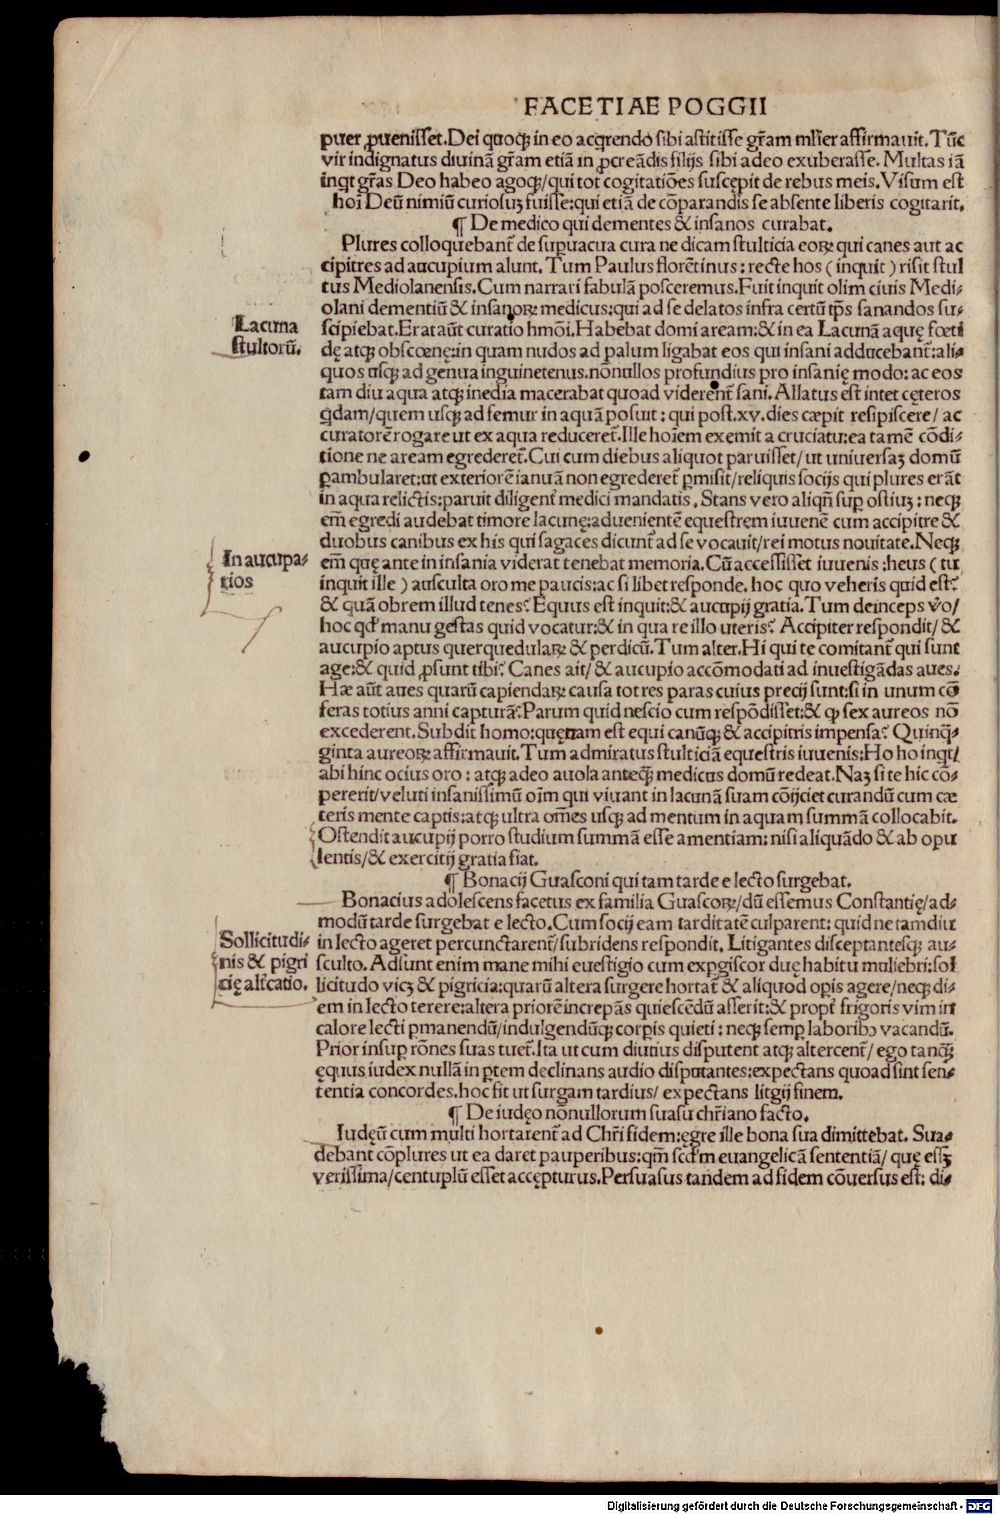 FACETIAE POGGII
puer ꝓuenisset. Dei quoqꝫ in eo acq̃rendo sibi astitisse gr̃am mľier affirmauit. Tũc
vir indignatus diuinã gr̃am etiã in ꝓcreãdis filijs sibi adeo exuberasse. Multas iã
inqt gr̃as Deo habeo agoqꝫ/qui tot cogitatiões suscępit de rebus meis. Visum est
hoĩ Deũ nimiũ curiosuꝫ fuisse:qui etiã de cõparandis se absente liberis cogitarit.
¶ De medico qui dementes & insanos curabat.
Plures colloquebant̃ de suꝑuacua cura ne dicam stulticia eoꝝ qui canes aut ac
cipitres ad aucupium alunt. Tum Paulus florẽtinus: recte hos (inquit) risit stul
tus Mediolanensis. Cum narrari fabulã posceremus. Fuit inquit olim ciuis Medi-
olani dementiũ & insanoꝝ medicus:qui ad se delatos infra certũ tp̃s sanandos su-
Lacuna
stultorũ.
scipiebat. Erat aũt curatio hmõi. Habebat domi aream:& in ea Lacunã aquę fœti
dę atqꝫ obscœnę:in quam nudos ad palum ligabat eos qui insani adducebant̃:ali-
quos usqꝫ ad genua inguinetenus. nõnullos profundius pro insanię modo: ac eos
tam diu aqua atqꝫ inedia macerabat quoad viderent̃ sani. Allatus est intet cęteros
q̃dam/quem usqꝫ ad femur in aquã posuit: qui post. xv. dies cæpit resipiscere/ ac
curatorẽ rogare ut ex aqua reduceret̃. Ille hoĩem exemit a cruciatu:ea tamẽ cõdi-
tione ne aream egrederet̃. Cui cum diebus aliquot paruisset/ut uniuersaꝫ domũ
ꝑambularet:ut exteriorẽ ianuã non egrederet̃ ꝑmisit/reliquis socijs qui plures erãt
in aqua relictis:paruit diligent̃ medici mandatis. Stans vero aliqñ suꝑ ostiuꝫ: neqꝫ
em̃ egredi audebat timore lacunę:aduenientẽ equestrem iuuenẽ cum accipitre &
duobus canibus ex his qui sagaces dicunt̃ ad se vocauit/rei motus nouitate. Neqꝫ
In aucupa-
rios
em̃ quę ante in insania viderat tenebat memoria. Cũ accessisset iuuenis :heus (tu
inquit ille) ausculta oro me paucis:ac si libet responde. hoc quo veheris quid est?
& quã obrem illud tenes? Equus est inquit:& aucupij gratia. Tum deinceps ṽo/
hoc qd̃ manu gestas quid vocatur:& in qua re illo uteris? Accipiter respondit/ &
aucupio aptus querquedulaꝝ & perdicũ. Tum alter. Hi qui te comitant̃ qui sunt
age:& quid ꝓsunt tibi? Canes ait/ & aucupio accõmodati ad inuestigãdas aues.
Hæ aũt aues quarũ capiendaꝝ causa tot res paras cuius precij sunt:si in unum cõ
feras totius anni capturã? Parum quid nescio cum respõdisset:& ꝙ sex aureos nõ
excederent. Subdit homo:quęnam est equi canũqꝫ & accipitris impensa? Quinq̃-
ginta aureoꝝ affirmauit. Tum admiratus stulticiã equestris iuuenis: Ho ho inqt/
abi hinc ocius oro: atqꝫ adeo auola anteqꝫ̃ medicus domũ redeat. Naꝫ si te hic cõ-
pererit/veluti insanissimũ oĩm qui viuant in lacunã suam cõijciet curandũ cum cæ
teris mente captis:atqꝫ ultra om̃es usqꝫ ad mentum in aquam summã collocabit.
Ostendit aucupij porro studium summã esse amentiam: nisi aliquãdo & ab opu
lentis/& exercitij gratia fiat.
¶ Bonacij Guasconi qui tam tarde e lecto surgebat.
Bonacius adolescens facetus ex familia Guascoꝝ/dũ essemus Constantię/ad-
modũ tarde surgebat e lecto. Cum socij eam tarditatẽ culparent: quid ne tamdiu
Sollicitudi-
nis & pigri
cię alt̃catio.
in lecto ageret percunctarent̃/subridens respondit. Litigantes disceptantesqꝫ au-
sculto. Adsunt enim mane mihi euestigio cum exꝑgiscor duę habitu muliebri:sol
licitudo vicꝫ & pigricia:quarũ altera surgere hortat̃ & aliquod opis agere/neqꝫ di-
em in lecto terere:altera priorẽ increpãs quiescẽdũ asserit:& propt̃ frigoris vim in
calore lecti ꝑmanendũ/indulgendũqꝫ corꝑis quieti: neqꝫ semꝑ laboribꝰ vacandũ.
Prior insuꝑ rõnes suas tuet̃. Ita ut cum diutius disputent atqꝫ altercent̃/ ego tanqꝫ̃
ęquus iudex nullã in ꝑtem declinans audio disputantes:expectans quoad sint sen-
tentia concordes. hoc fit ut surgam tardius/ expectans litgij finem.
¶ De iudęo nõnullorum suasu chr̃iano facto.
Iudęũ cum multi hortarent̃ ad Chr̃i fidem:ęgre ille bona sua dimittebat. Sua-
debant cõplures ut ea daret pauperibus:qm̃ scd̃m euangelicã sententiã/ quę essꝫ
verissima/centuplũ esset accępturus. Persuasus tandem ad fidem cõuersus est: di-
Digitalisierung gefördert durch die Deutsche Forschungsgemeinschaft - DFG